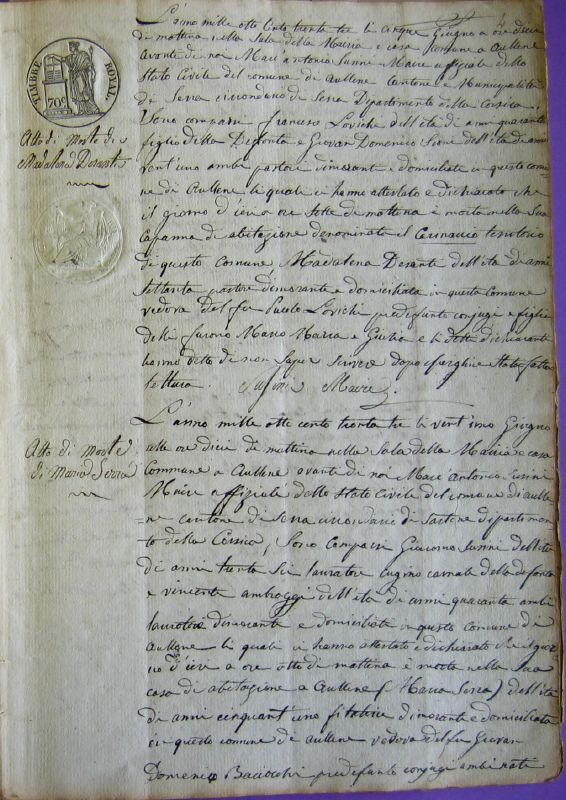 TIMBRE ROYAL
70c
4
L'anno mille otto cento trenta tre li cinque Giugno a ore dieci
di mattina nella Sala della Maria e casa Comune a Aullene
avante di noi Marc' antonio Susini Maire uffiziale dello
Stato Civile del comune di Aullene Cantone e Municipalità
di Serra circondario di Dipartimento della Corsica
Sono comparsi Francesco Lovichi dell'età di anni quaranta
figlio della Defonta e Giovan Domenico dell'età di anni
vent'uno ambi pastori dimorante e domiciliate in questo comu
ne di Aullene li quali ci hanno attestato e dichiarato che
il giorno d'ieri a ore sette di mattina è morta nella Sua
Capanna di abitazione denominata il territorio
di questo Comune Madalena Derante dell'età di anni
settanta pastore dimorante e domiciliata in questo Comune
vedova del fu Paolo Lovichi predefunte conjugi e figlia
delli furono Marco Maria e Giulia e li detti dichiarante
hanno detto di non Saper Scrivere dopo essergliene Stata fatta
lettura. Susini Maire
Atto di Morte di
Madalena Derante
L'anno mille otto cento trenta tre li vent'uno Giugno
alle ore dieci di mattina nella Sala della Maria e casa
Commune a Aullene avante di noi Marc' antonio Susini
Maire e uffiziale dello Stato Civile del comune di aulle
ne cantone di Serra circondario di Sartene dipartimen
to della Corsica, Sono Comparsi Giacomo Susini dell'età
di anni trenta Sei lauratore cugino carnale della defonta
e vincente ambroggi dell'età di anni quaranta ambi
lauratore dimorante e domiciliate in questo comune di
Aullene li quali ci hanno attestato e dichiarato che il gior
no d'ieri a ore otto di mattina è morta nella Sua
casa di abitazione a Aullene (Maria Serra) dell'età
di anni cinquant'uno filatrice dimorante e domiciliata
in questo comune di aullene vedova del fu Giovan
Domenico Baciocchi predefunto conjugi ambi nati
Atto di Morte
di Maria Serra